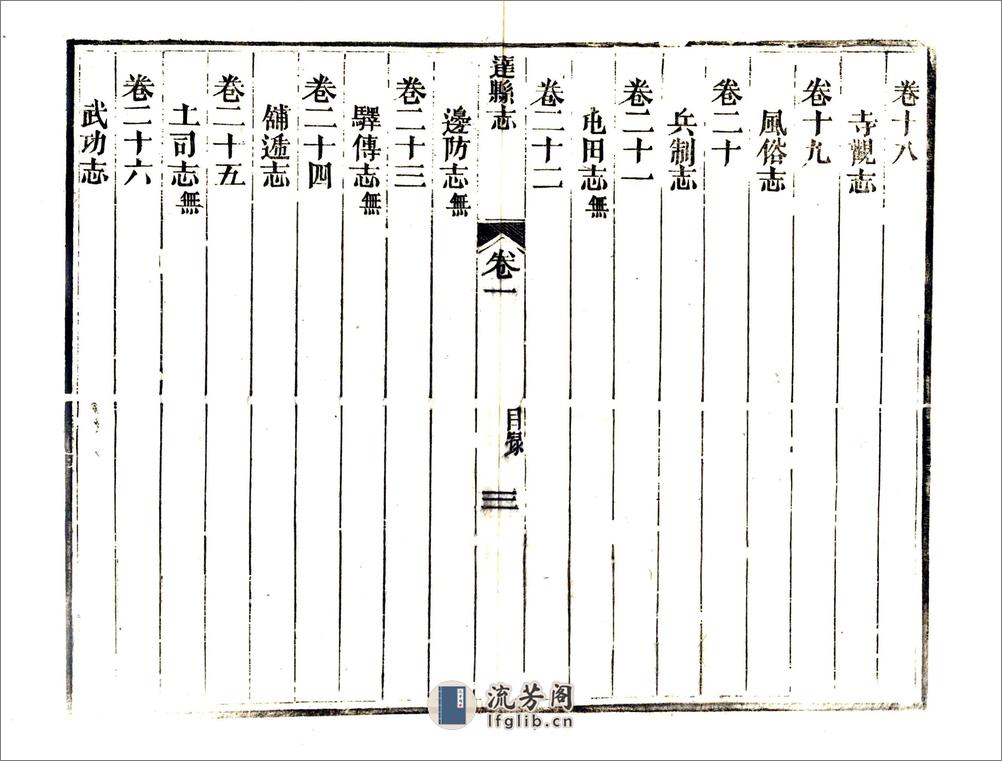 卷十八
寺觀志
卷十九
風俗志
卷二十
兵制志
卷二十一
屯田志無
卷二十二
達縣志
卷一
目錄
三
邊防志無
卷二十三
驛傳志無
卷二十四
舖遞志
卷二十五
土司志無
卷二十六
武功志
流芳阁
lfglib.cn